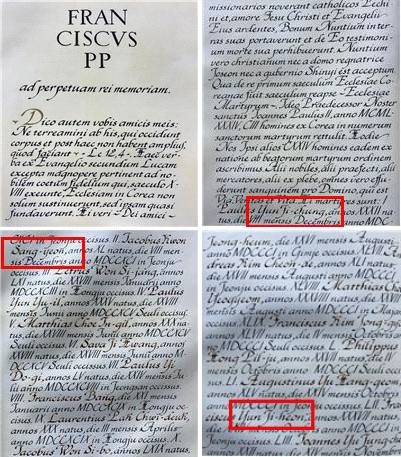 FRAN
CISCVS
PP
ad perpetuam rei memoriam.
Dico autem vobis amicis meis:
Ne terreamini ab his, qui occidunt
corpus et post haec non habent amplius,
quod faciant
ex Evangelio secundum Lucam
excepta pertinent ad no-
bilem coetum fidelium qui, saeculo
XVIII exeunte, Ecclesiam in Corea non
solum sustinuerunt, sed ipsam quasi
fundaverunt. Hi veri Dei amici
missionarios noverant catholicos Pechi-
ni et, amore Jesu Christi et Evangelii
Eius ardentes, Bonum Nuntium in ter-
ras suas portaverunt et de eo testimoni-
um morte sua perhibuerunt. Nuntium
vero christianum nec a domo regnatrice
Joseon nec a gubernio Sinyu est acceptum.
Qua de re primum saeculum Ecclesiae Co-
reanae fuit saeculum
Martyrum. Ideo Praedecessor Noster
sanctus Ioannes Paulus II, anno MCML
XXXIV, CIII homines ex Corea in numerum
sanctorum martyrum rettulit. Hodie
Nos Ipsi alios CXXIV homines eadem ex
natione ad beatorum martyrum ordinem
ascribimus. Alii nobiles, alii
mercatores, alii ex plebe, omnes vero effu-
derunt sanguinem pro Domino, qui est
Via, Veritas et Vita. Hi martyres sunt: I.
Paulus Yun Ji-chung, annos XXXII na-
tus, die VIII mensis Decembris anno MDC
CXCI in Jeonju occisus. II. Jacobus Kwon
Sang-yeon, annos XL natus, die VIII men-
sis Decembris anno MDCCXCI in Jeonju
occisus. III. Petrus Won Si-jang, annos
LXI natus, die XVII mensis Ianuarii anno
MDCCXCIII in Hongju occisus. IV. Paulus
Yun Yu-il, annos XXXV natus, die XXVIII
mensis Iunii anno MDCCXCV Seuli occisus.
V. Matthias Choe In-gil, annos XXX na-
tus, die XXVIII mensis Iunii anno MDCC
XCV Seuli occisus. VI. Sabas Ji Hwang, annos
XXVIII natus, die XXVIII mensis Iunii anno M
DCCXCV Seuli occisus. VII. Paulus Yi
Do-gi, annos LV natus, die XXIV mensis Iu-
lii anno MDCCXCVIII in Jeongsan occisus.
VIII. Franciscus Bang, die XXI mensis
Ianuarii anno MDCCXCIX in Hongju oc-
cisus. IX. Laurentius Pak Chwi-deuk, annos
XXX natus, die III mensis Aprilis
anno MDCCXCIX in Hongju occisus. X.
Jacobus Won Si-bo, annos LXIX natus,
Jeong-heum, die XXVI mensis Augusti
anno MDCCCI in Gimje occisus. XLVIII. An-
dreas Kim Gwang-ok, annos LX natus, die XXV
mensis Augusti anno MDCCCI in
occisus.
Franciscus Kim Jong-gyo,
die IV mensis Octobris anno MDCCCI
Seuli occisus. L. Philippus
Hong Pil-ju, annos XXVII natus, die IV
mensis Octobris anno MDCCCI Seuli occi-
sus. LI. Augustinus Yu Hang-geom,
annos XLV natus, die XXIV mensis Octobris
anno MDCCCI in Jeonju occisus. LII. Fran-
ciscus Yun Ji-heon, annos XXXVII na-
tus, die XXIV mensis Octobris
in Jeonju occisus. LIII. Ioannes Yu Jung-cheol,